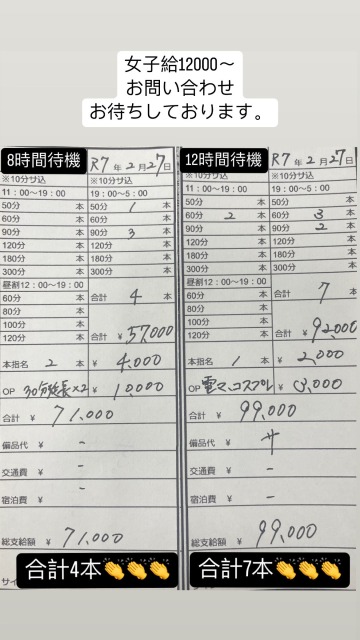 女子給12000～
お問い合わせ
お待ちしております。
8時間待機
R7年2月27日
※10分サ込 ※10分サ込
11：00～19：00 19：00～5：00
50分 本 50分 1 本
60分 本 60分 本
90分 本 90分 3 本
120分 本 120分 本
180分 本 180分 本
300分 本 300分 本
昼割12：00～19：00
60分 本 合計 4 本
80分 本
100分 本
120分 本 合計 ¥ 57,000
本指名 2 本 ¥ 4,000
OP 30分延長×2 ¥ 10,000
合計 ¥ 71,000
備品代 ¥ -
交通費 ¥ -
宿泊費 ¥ -
総支給額 ¥ 71,000
サイ
合計4本👏👏👏
12時間待機
R7年2月27日
※10分サ込 ※10分サ込
11：00～19：00 19：00～5：00
50分 本 50分 本
60分 2 本 60分 3 本
90分 本 90分 2 本
120分 本 120分 本
180分 本 180分 本
300分 本 300分 本
昼割12：00～19：00
60分 本 合計 7 本
80分 本
100分 本
120分 本 合計 ¥ 92,000
本指名 1 本 ¥ 2,000
OP 電マ、コスプレ ¥ 3,000
合計 ¥ 99,000
備品代 ¥
交通費 ¥ -
宿泊費 ¥ -
総支給額 ¥ 99,000
合計7本👏👏👏